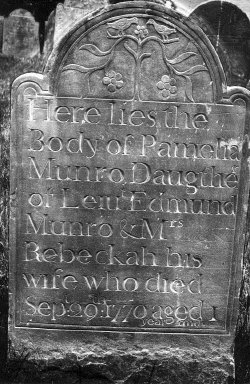 Here lies the
Body of Pamelia
Munro, Daugthe
of Leiut Edmund
Munro & Mrs
Rebeckah his
wife who died
Sept 29: 1770 aged 1
year